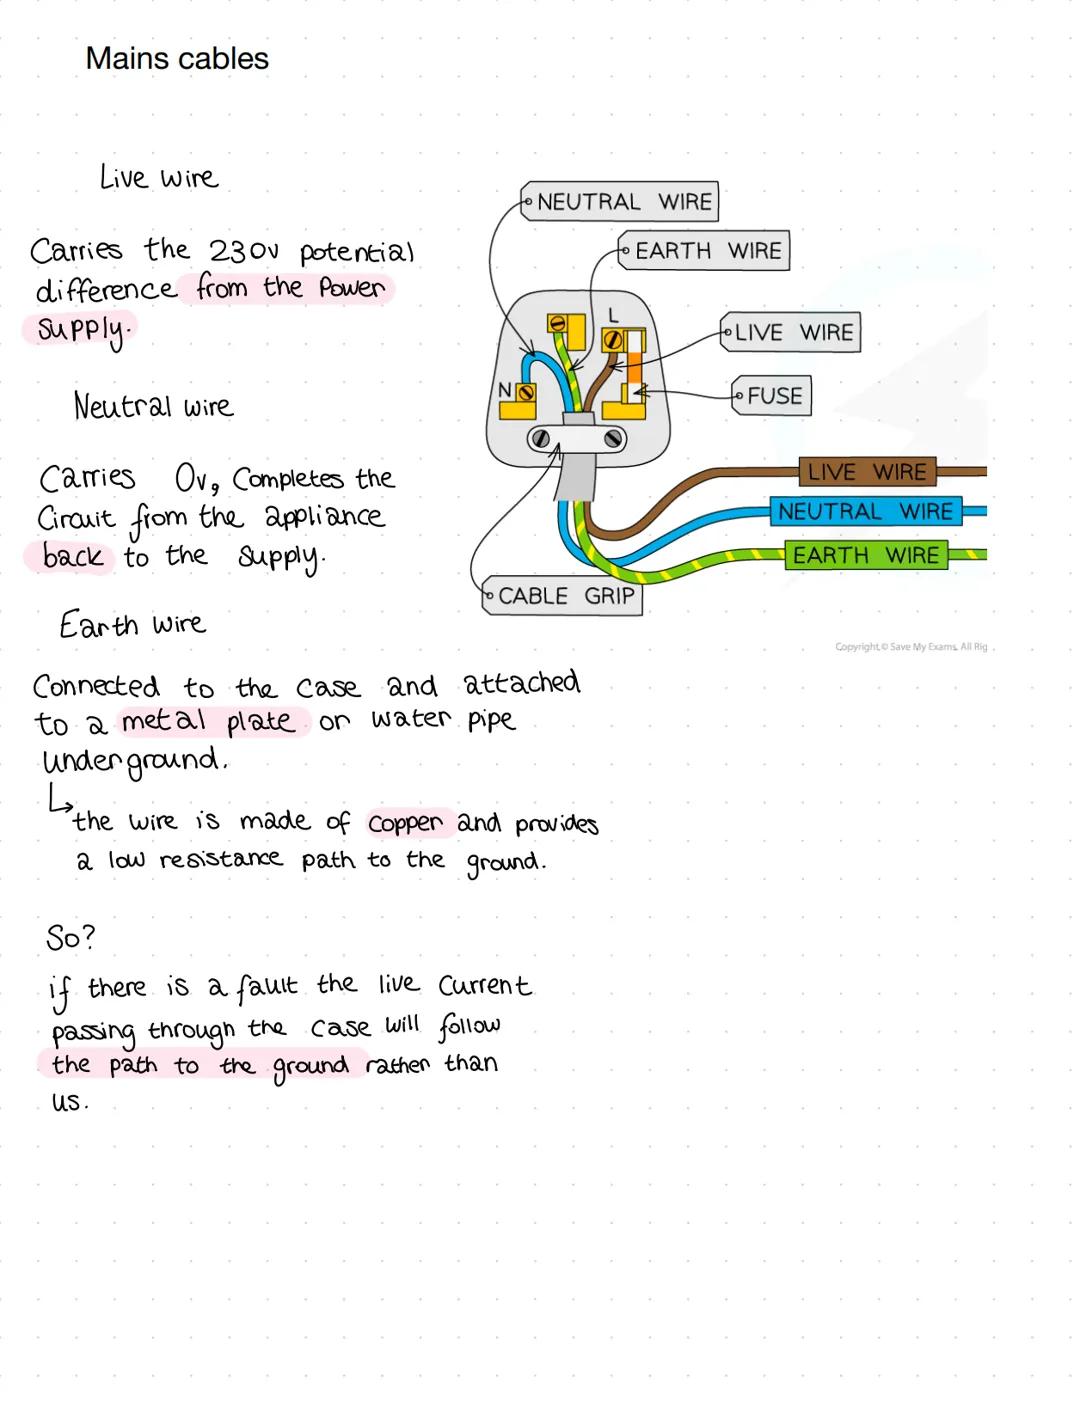 Mains cables
Live wire
Carries the 230v potential
difference from the Power
supply.
Neutral wire
Carries 0v, Completes the
Circuit from the appliance
back to the supply.
Earth wire
Connected to the case and attached
to a metal plate or water pipe
underground.
the wire is made of copper and provides
a low resistance path to the ground.
So?
if there is a fault the live current
passing through the case will follow
the path to the ground rather than
us.
NEUTRAL WIRE
EARTH WIRE
L
LIVE WIRE
N
FUSE
LIVE WIRE
NEUTRAL WIRE
EARTH WIRE
CABLE GRIP
Copyright © Save My Exams. All Rig